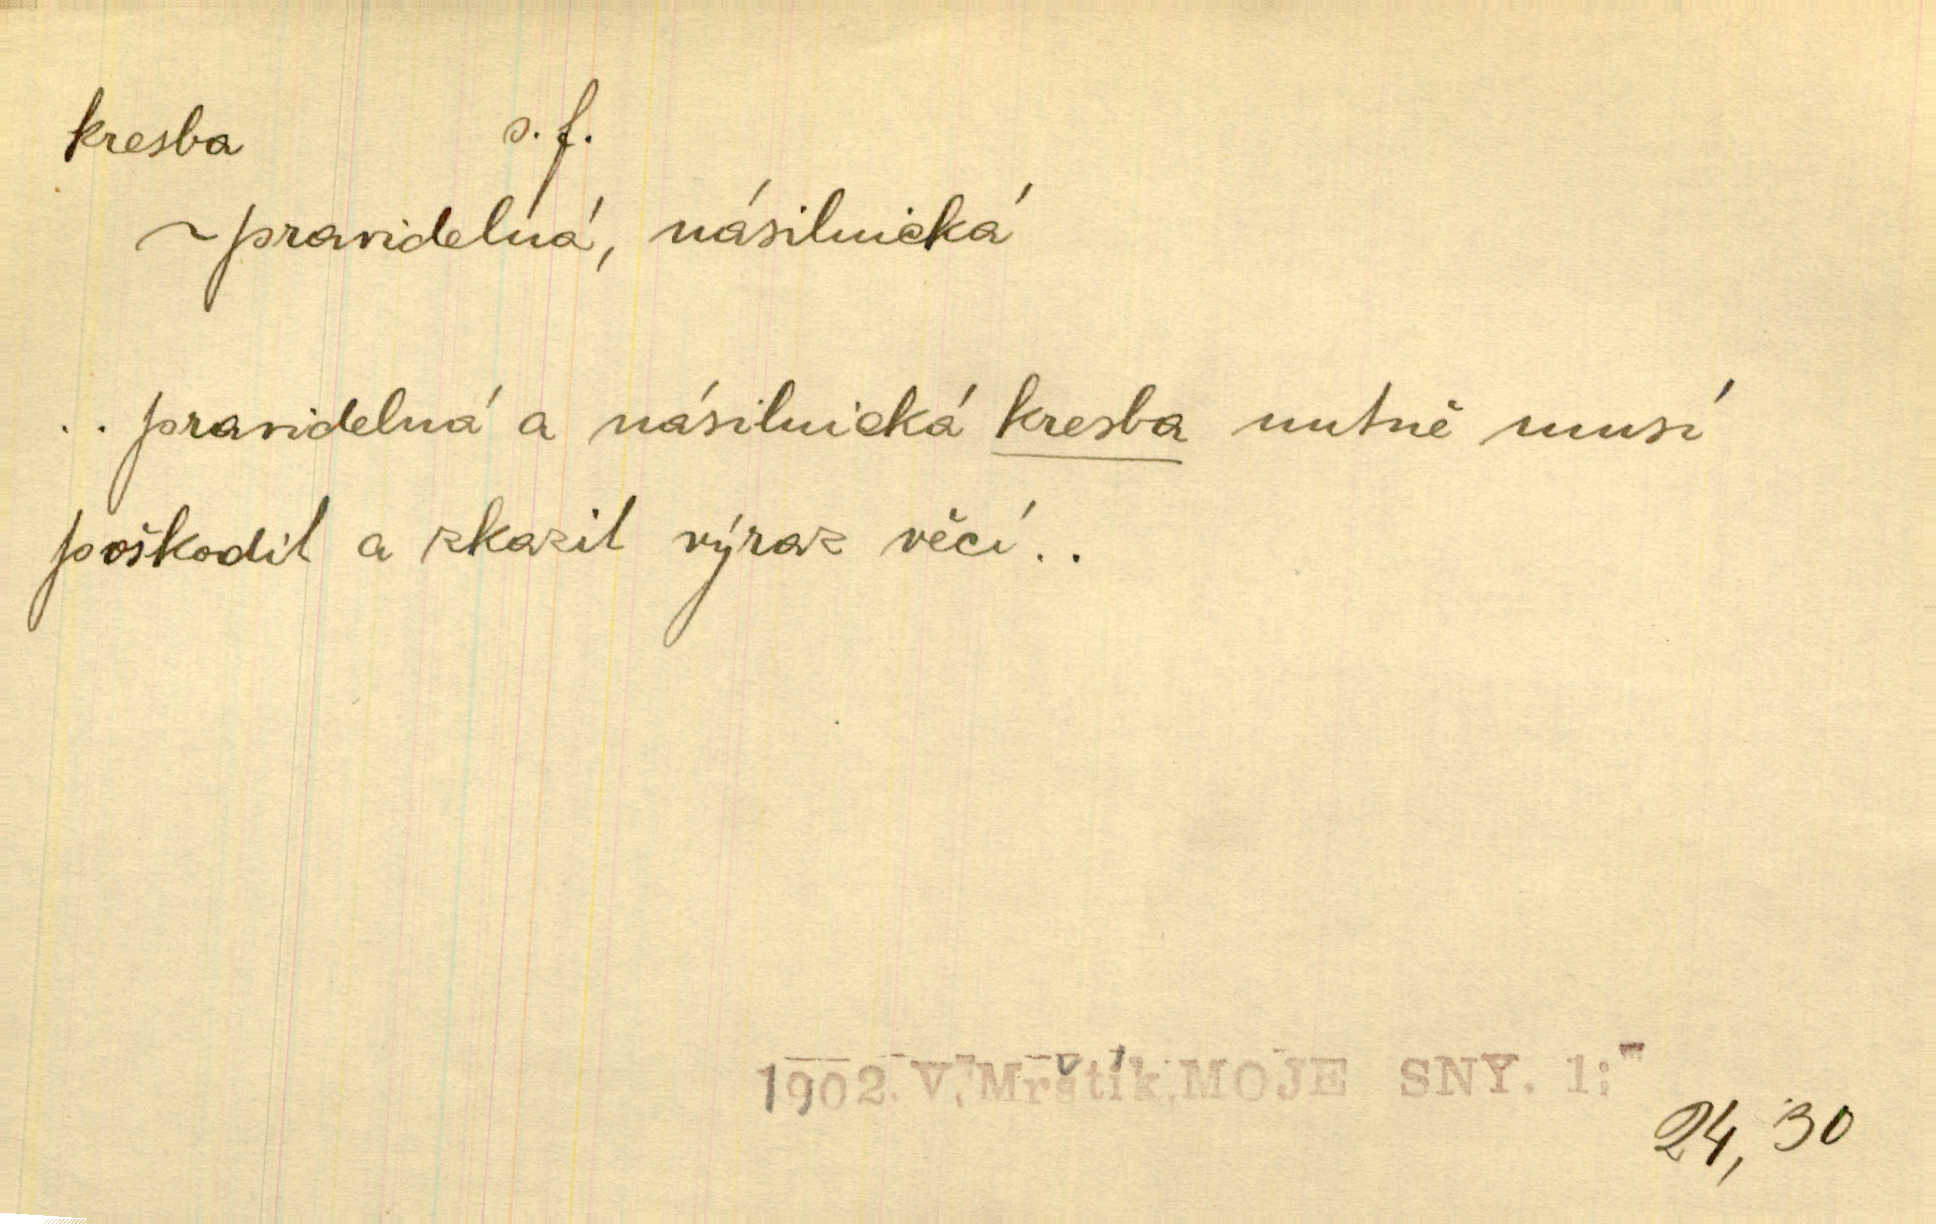 kresba s. f.
~ pravidelná, násilnická
.. pravidelná a násilnická kresba nutně musí
poškodit a zkazit výraz věcí..
1902. V. Mrštík, MOJE SNY. 1:
24, 30